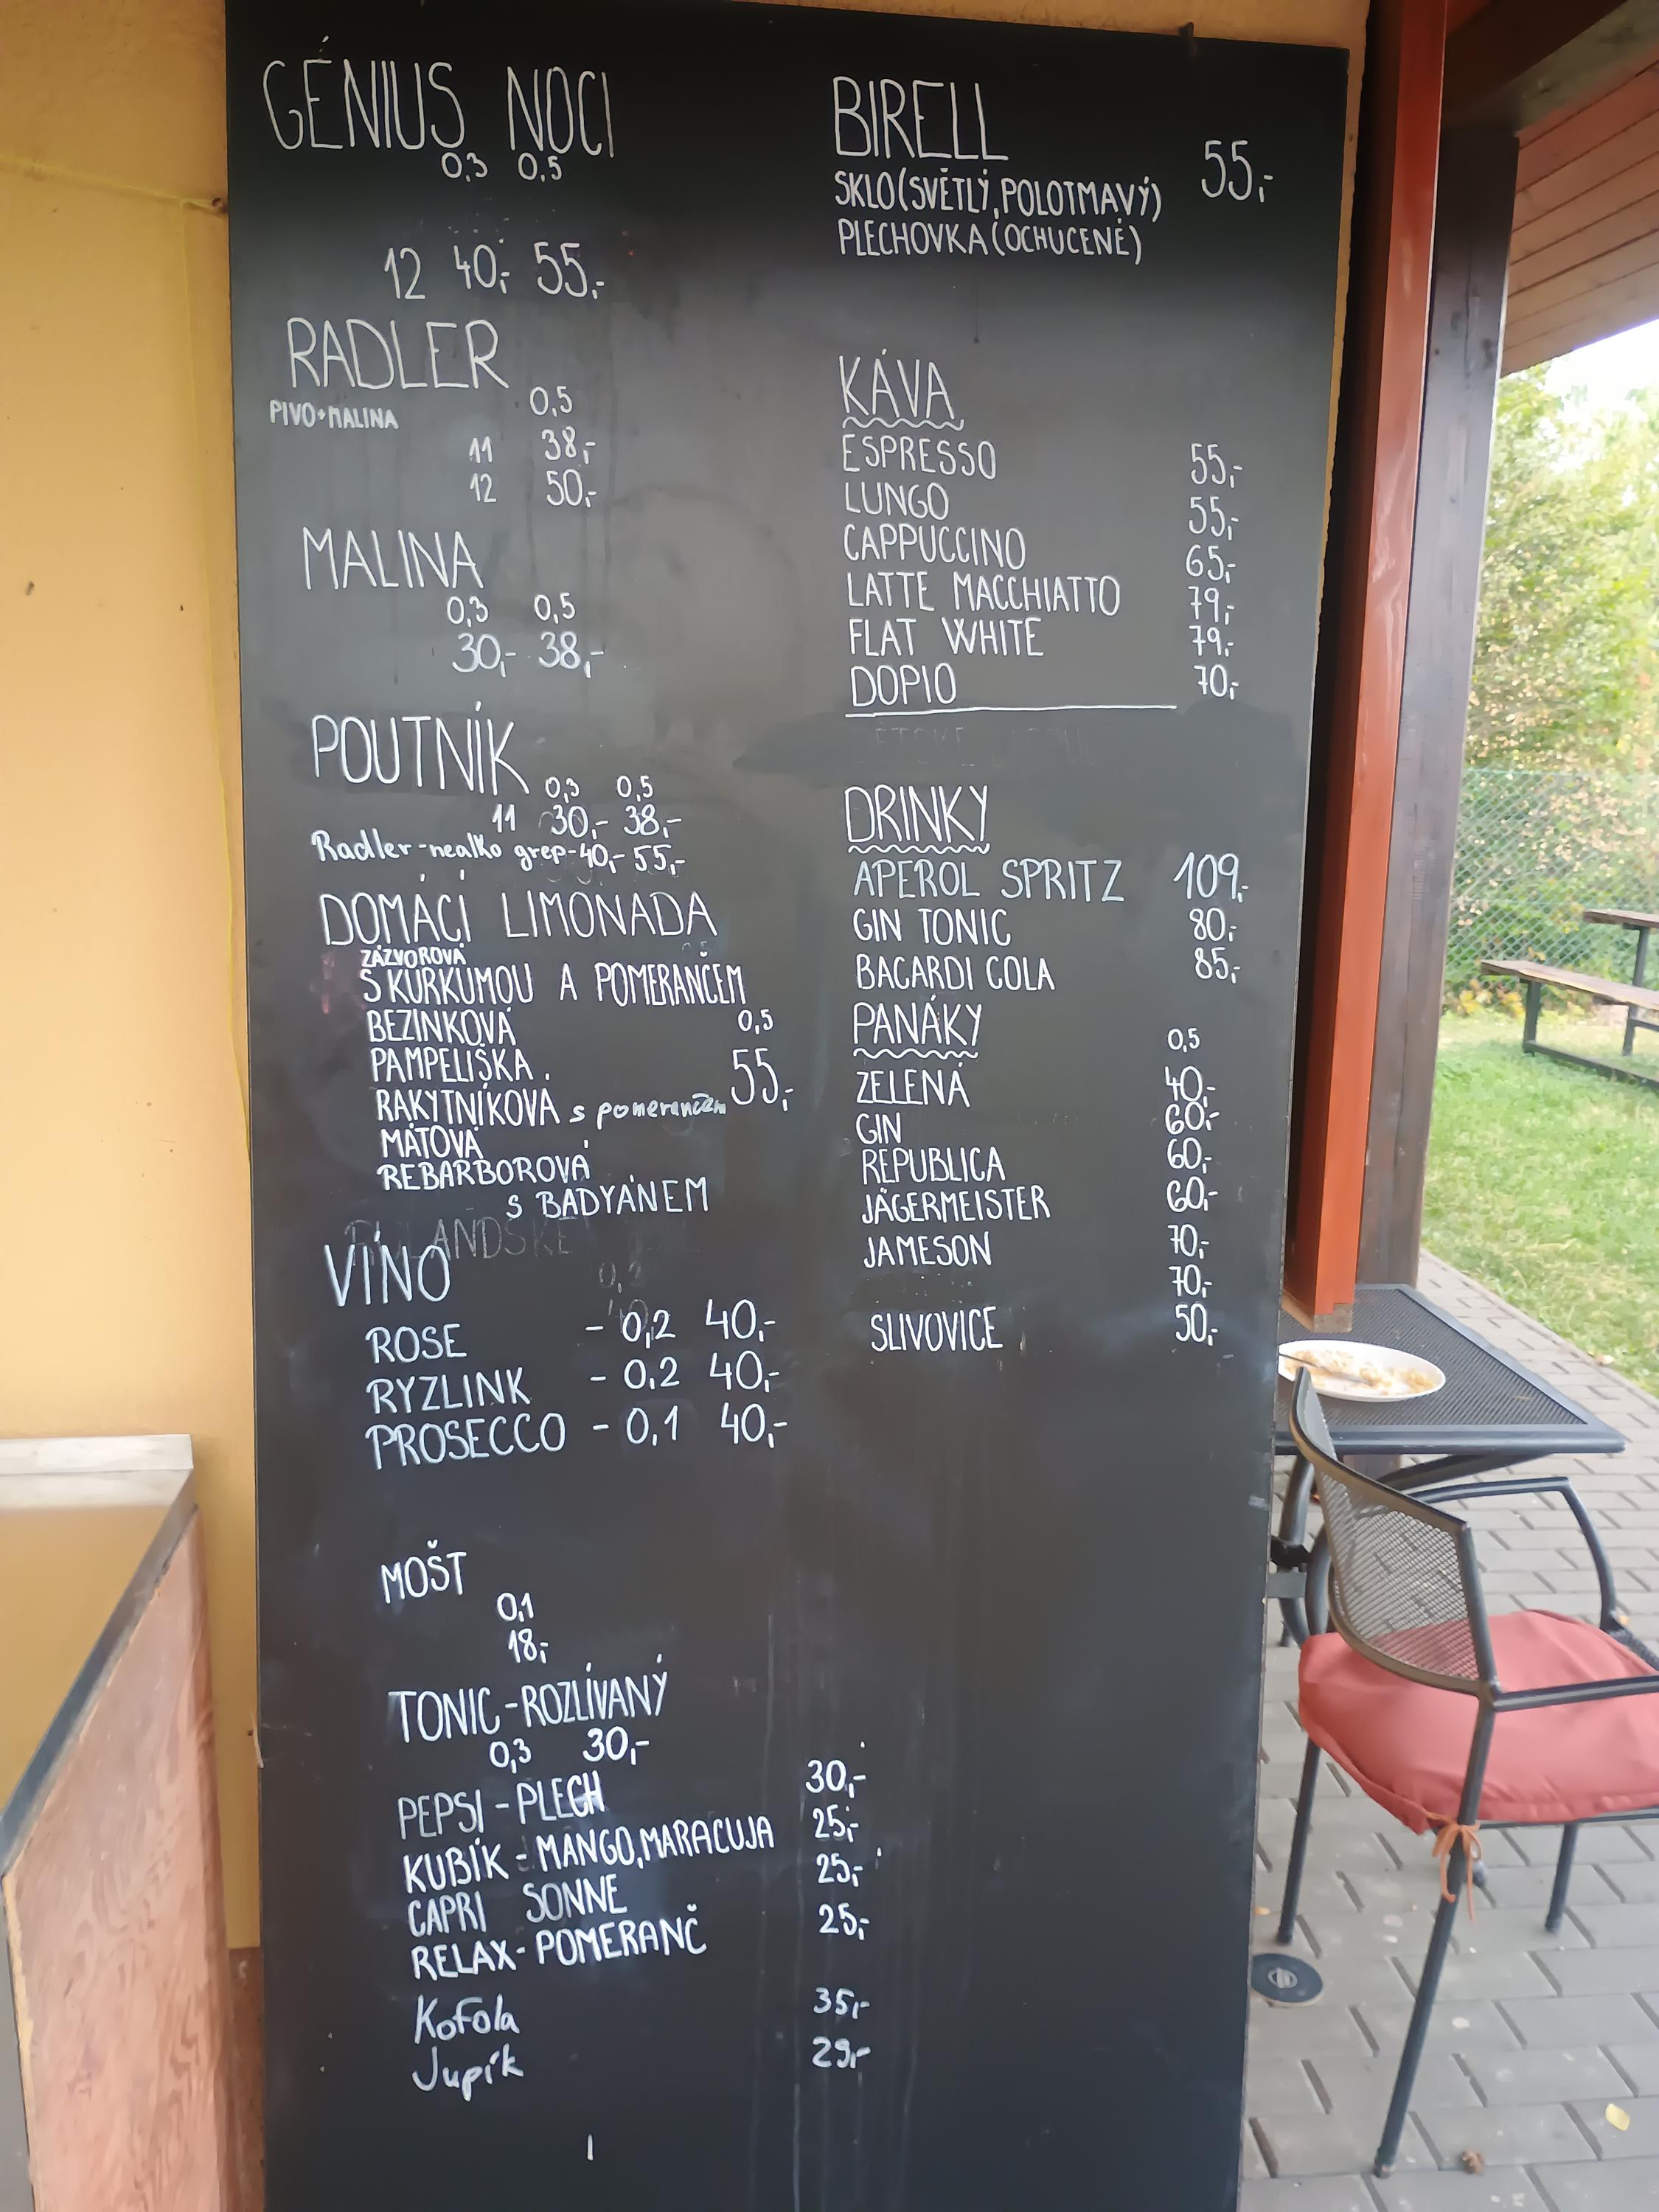 GÉNIUS NOCI
0,3 0,5
12 40,- 55,-
RADLER
0,5
PIVO+MALINA
11 38,-
12 50,-
MALINA
0,3 0,5
30,- 38,-
POUTNÍK
0,3 0,5
11 30,- 38,-
Radler-nealko grep-40,- 55,-
DOMÁCÍ LIMONADA
ZÁZVOROVÁ
S KURKUMOU A POMERANČEM
BEZINKOVÁ 0,5
PAMPELIŠKA.
55,-
RAKYTNÍKOVA s pomerančem
MÁTOVÁ
REBARBOROVÁ
S BADYÁNEM
VÍNO
ROSE - 0,2 40,-
RYZLINK - 0,2 40,-
PROSECCO - 0,1 40,-
MOŠT
0,1
18,-
TONIC-ROZLÍVANÝ
0,3 30,-
PEPSI - PLECH 30,-
KUBÍK - MANGO,MARACUJA 25,-
CAPRI SONNE 25,-
RELAX- POMERANČ 25,-
Kofola 35,-
Jupík 29,-
BIRELL
55,-
SKLO(SVĚTLÝ,POLOTMAVÝ)
PLECHOVKA(OCHUCENÉ)
KÁVA
ESPRESSO 55,-
LUNGO 55,-
CAPPUCCINO 65,-
LATTE MACCHIATTO 79,-
FLAT WHITE 79,-
DOPIO 70,-
DRINKY
APEROL SPRITZ 109,-
GIN TONIC 80,-
BACARDI COLA 85,-
PANÁKY
0,5
ZELENÁ 40,-
GIN 60,-
REPUBLICA 60,-
JÄGERMEISTER 60,-
JAMESON 70,-
70,-
SLIVOVICE 50,-